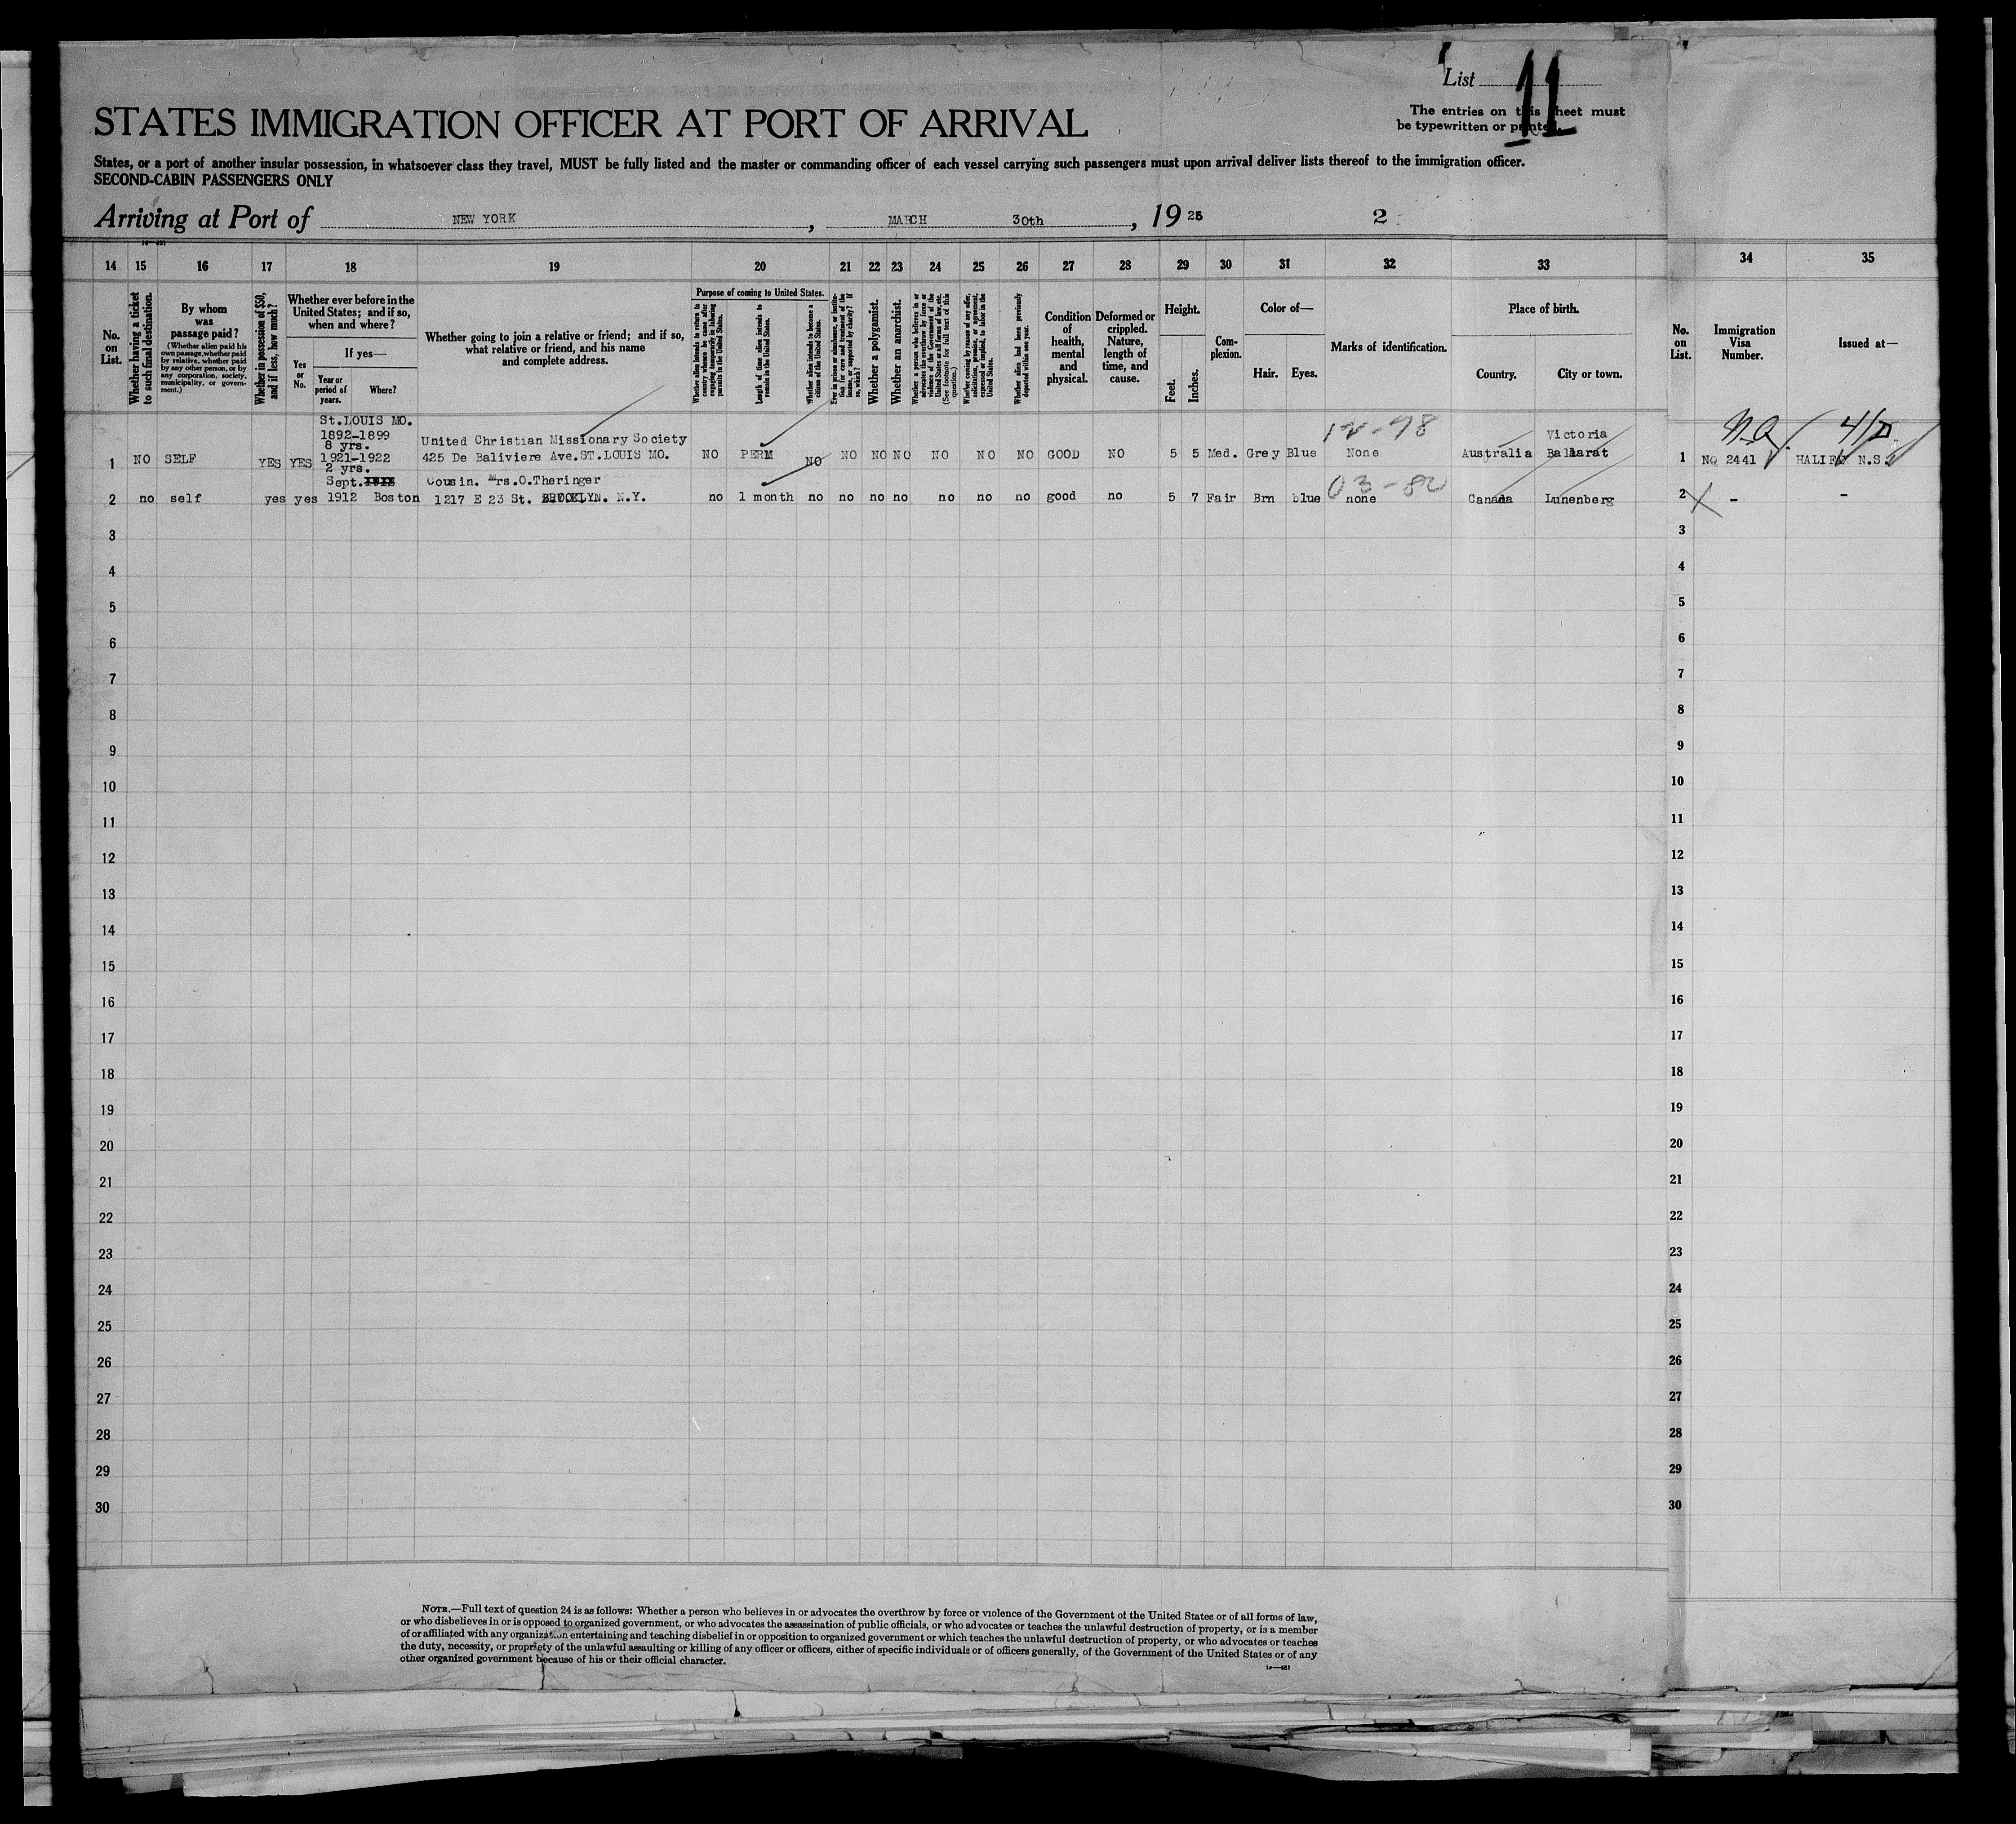 List 11
The entries on this sheet must
be typewritten or printed.
STATES IMMIGRATION OFFICER AT PORT OF ARRIVAL
States, or a port of another insular possession, in whatsoever class they travel, MUST be fully listed and the master or commanding officer of each vessel carrying such passengers must upon arrival deliver lists thereof to the immigration officer.
SECOND-CABIN PASSENGERS ONLY
Arriving at Port of NEW YORK, MARCH 30th, 1925 2
14 15 16 17 18 19 20 21 22 23 24 25 26 27 28 29 30 31 32 33 34 35
No. on List.
Whether having a ticket to such final destination.
By whom was passage paid?
(Whether alien paid his own passage, whether paid by relative, whether paid by any other person, or by any corporation, society, municipality, or government.)
Whether in possession of $50, and if less, how much?
Whether ever before in the United States; and if so, when and where?
Yes or No.
If yes—
Year or period of years.
Where?
Whether going to join a relative or friend; and if so, what relative or friend, and his name and complete address.
Purpose of coming to United States.
Whether alien intends to return to country whence he came after engaging temporarily in laboring pursuits in the United States.
Length of time alien intends to remain in the United States.
Whether alien intends to become a citizen of the United States.
Ever in prison or almshouse, or institution for care and treatment of the insane, or supported by charity? If so, which?
Whether a polygamist.
Whether an anarchist.
Whether a person who believes in or advocates the overthrow by force or violence of the Government of the United States or all forms of law, etc. (See footnote for full text of this question.)
Whether coming by reason of any offer, solicitation, promise, or agreement, expressed or implied, to labor in the United States.
Whether alien had been previously deported within one year.
Condition of health, mental and physical.
Deformed or crippled. Nature, length of time, and cause.
Height.
Feet.
Inches.
Complexion.
Color of—
Hair. Eyes.
Marks of identification.
Place of birth.
Country.
City or town.
No. on List.
Immigration Visa Number.
Issued at—
St.LOUIS MO.
1892-1899
8 yrs.
1921-1922
2 yrs.
United Christian Missionary Society
425 De Baliviere Ave.ST.LOUIS MO.
12-98
Victoria
1 NO SELF YES YES NO PERM NO NO NO NO NO NO NO GOOD NO 5 5 Med. Grey Blue None Australia Ballarat 1 NQ 2441 HALIFAX N.S.
Sept.
Cousin. Mrs.O.Theringer
03-80
2 no self yes yes 1912 Boston 1217 E 23 St. BROOKLYN. N.Y. no 1 month no no no no no no no good no 5 7 Fair Brn blue none Canada Lunenberg 2 - -
3 3
4 4
5 5
6 6
7 7
8 8
9 9
10 10
11 11
12 12
13 13
14 14
15 15
16 16
17 17
18 18
19 19
20 20
21 21
22 22
23 23
24 24
25 25
26 26
27 27
28 28
29 29
30 30
NOTE.—Full text of question 24 is as follows: Whether a person who believes in or advocates the overthrow by force or violence of the Government of the United States or of all forms of law,
or who disbelieves in or is opposed to organized government, or who advocates the assassination of public officials, or who advocates or teaches the unlawful destruction of property, or is a member
of or affiliated with any organization entertaining and teaching disbelief in or opposition to organized government or which teaches the unlawful destruction of property, or who advocates or teaches
the duty, necessity, or propriety of the unlawful assaulting or killing of any officer or officers, either of specific individuals or of officers generally, of the Government of the United States or of any
other organized government because of his or their official character.